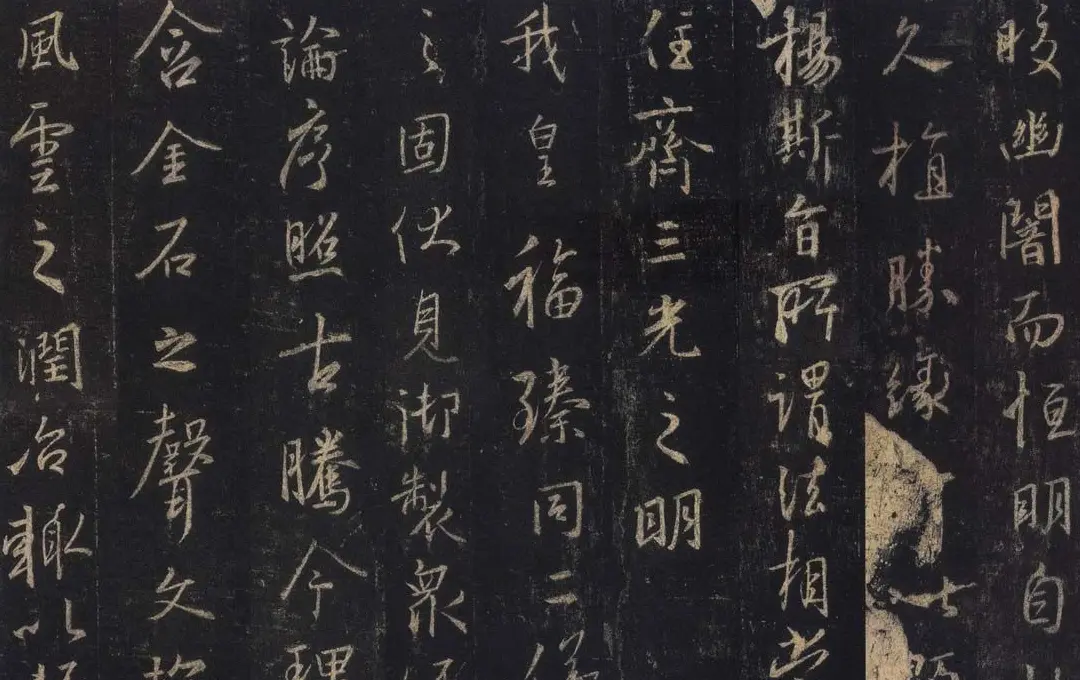 皎幽闇而恒明自
久植勝緣以
楊斯旨所謂法相常
住齊三光之明
我皇福臻同二儀
之固伏見御製眾
論序照古騰今理
含金石之聲文
風雲之潤治輒以